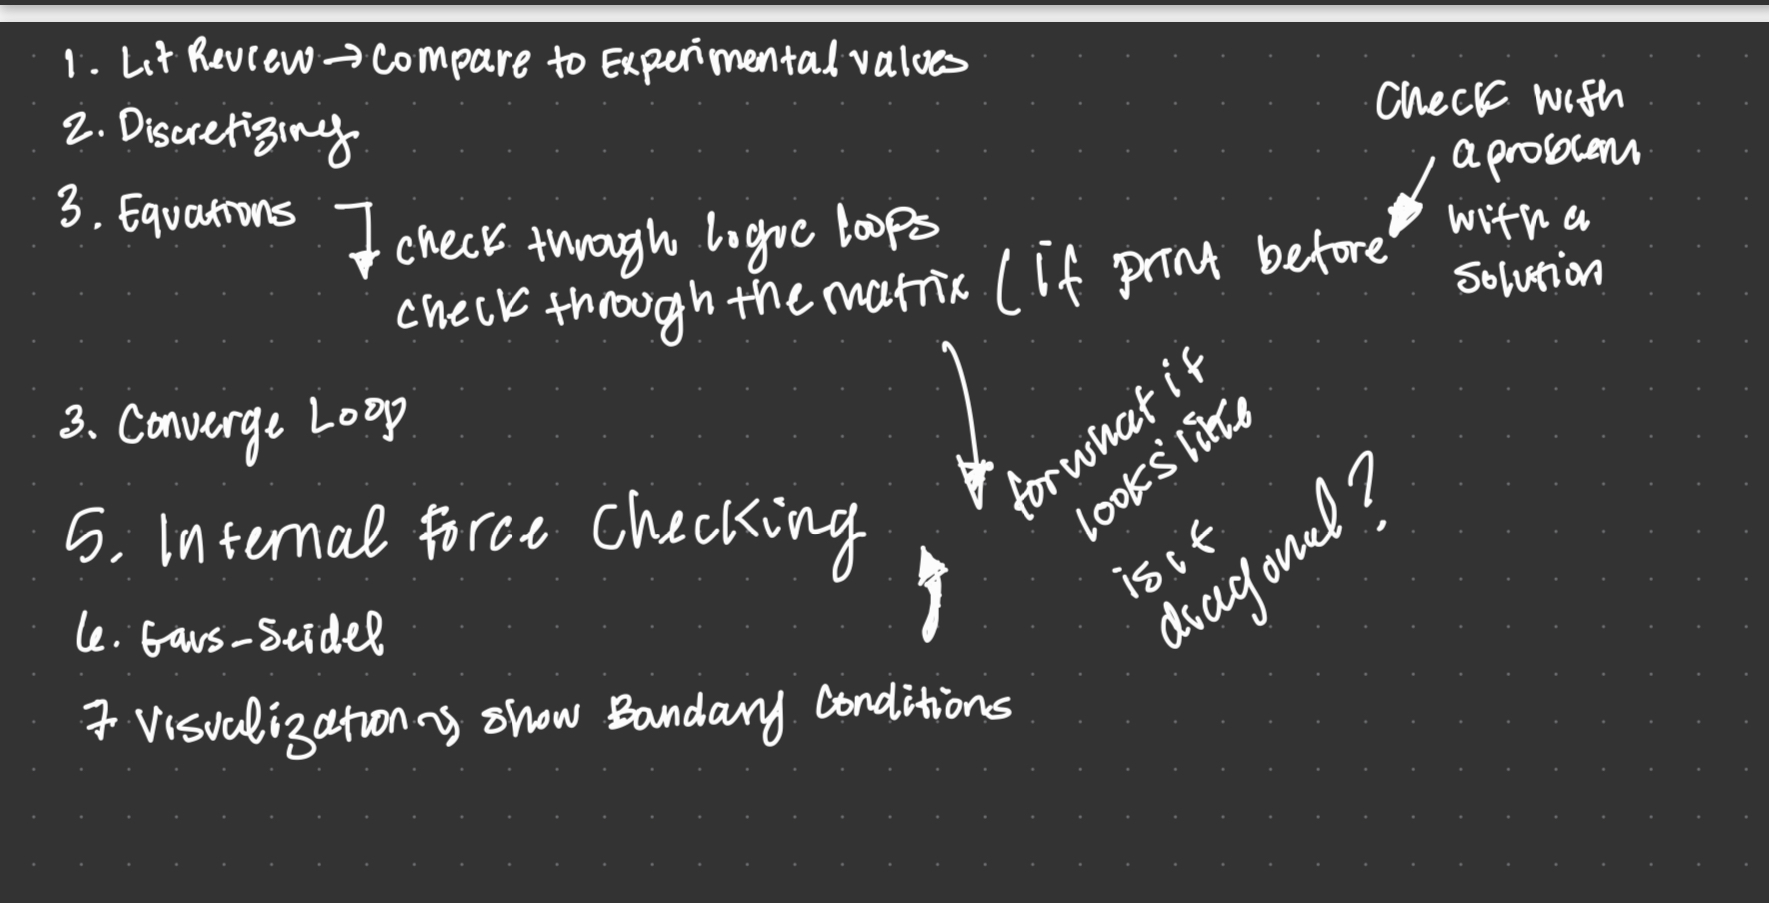 1. Lit Review → Compare to Experimental values
2. Discretizing
3. Equations
check through logic loops
check through the matrix (if print before
Check with
a problem
with a
solution
for what it
looks like
is it
diagonal?
3. Converge Loop
5. Internal force Checking
6. Gaus-Seidel
7 Visualization → show Boundary Conditions